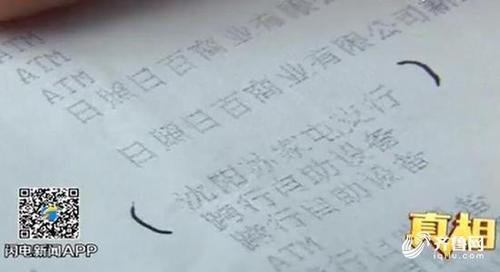 ATM
ATM
ATM
日照日百商业有限公司
日照日百商业有限公司
沈阳苏家屯支行
跨行自助设备
跨行自助设备
ATM
闪电新闻APP
真相
齐鲁网
iqilu.com